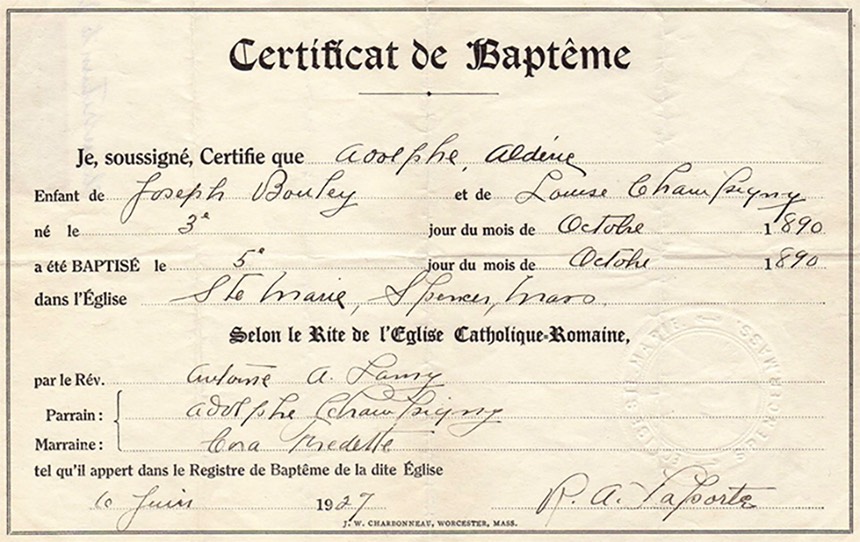 Certificat de Baptême
Je, soussigné, Certifie que Adolphe, Aldéric
Enfant de Joseph Bouley et de Louise Champigny
né le 3e jour du mois de Octobre 1890
a été BAPTISÉ le 5e jour du mois de Octobre 1890
dans l'Église Ste Marie, Spencer, Mass.
Selon le Rite de l'Eglise Catholique-Romaine,
par le Rév. Antoine A. Lamy
Parrain : Adolphe Champigny
Marraine : Cora
tel qu'il appert dans le Registre de Baptême de la dite Église
Juin 1927 R. A. Laporte
J. W. CHARBONNEAU, WORCESTER, MASS.